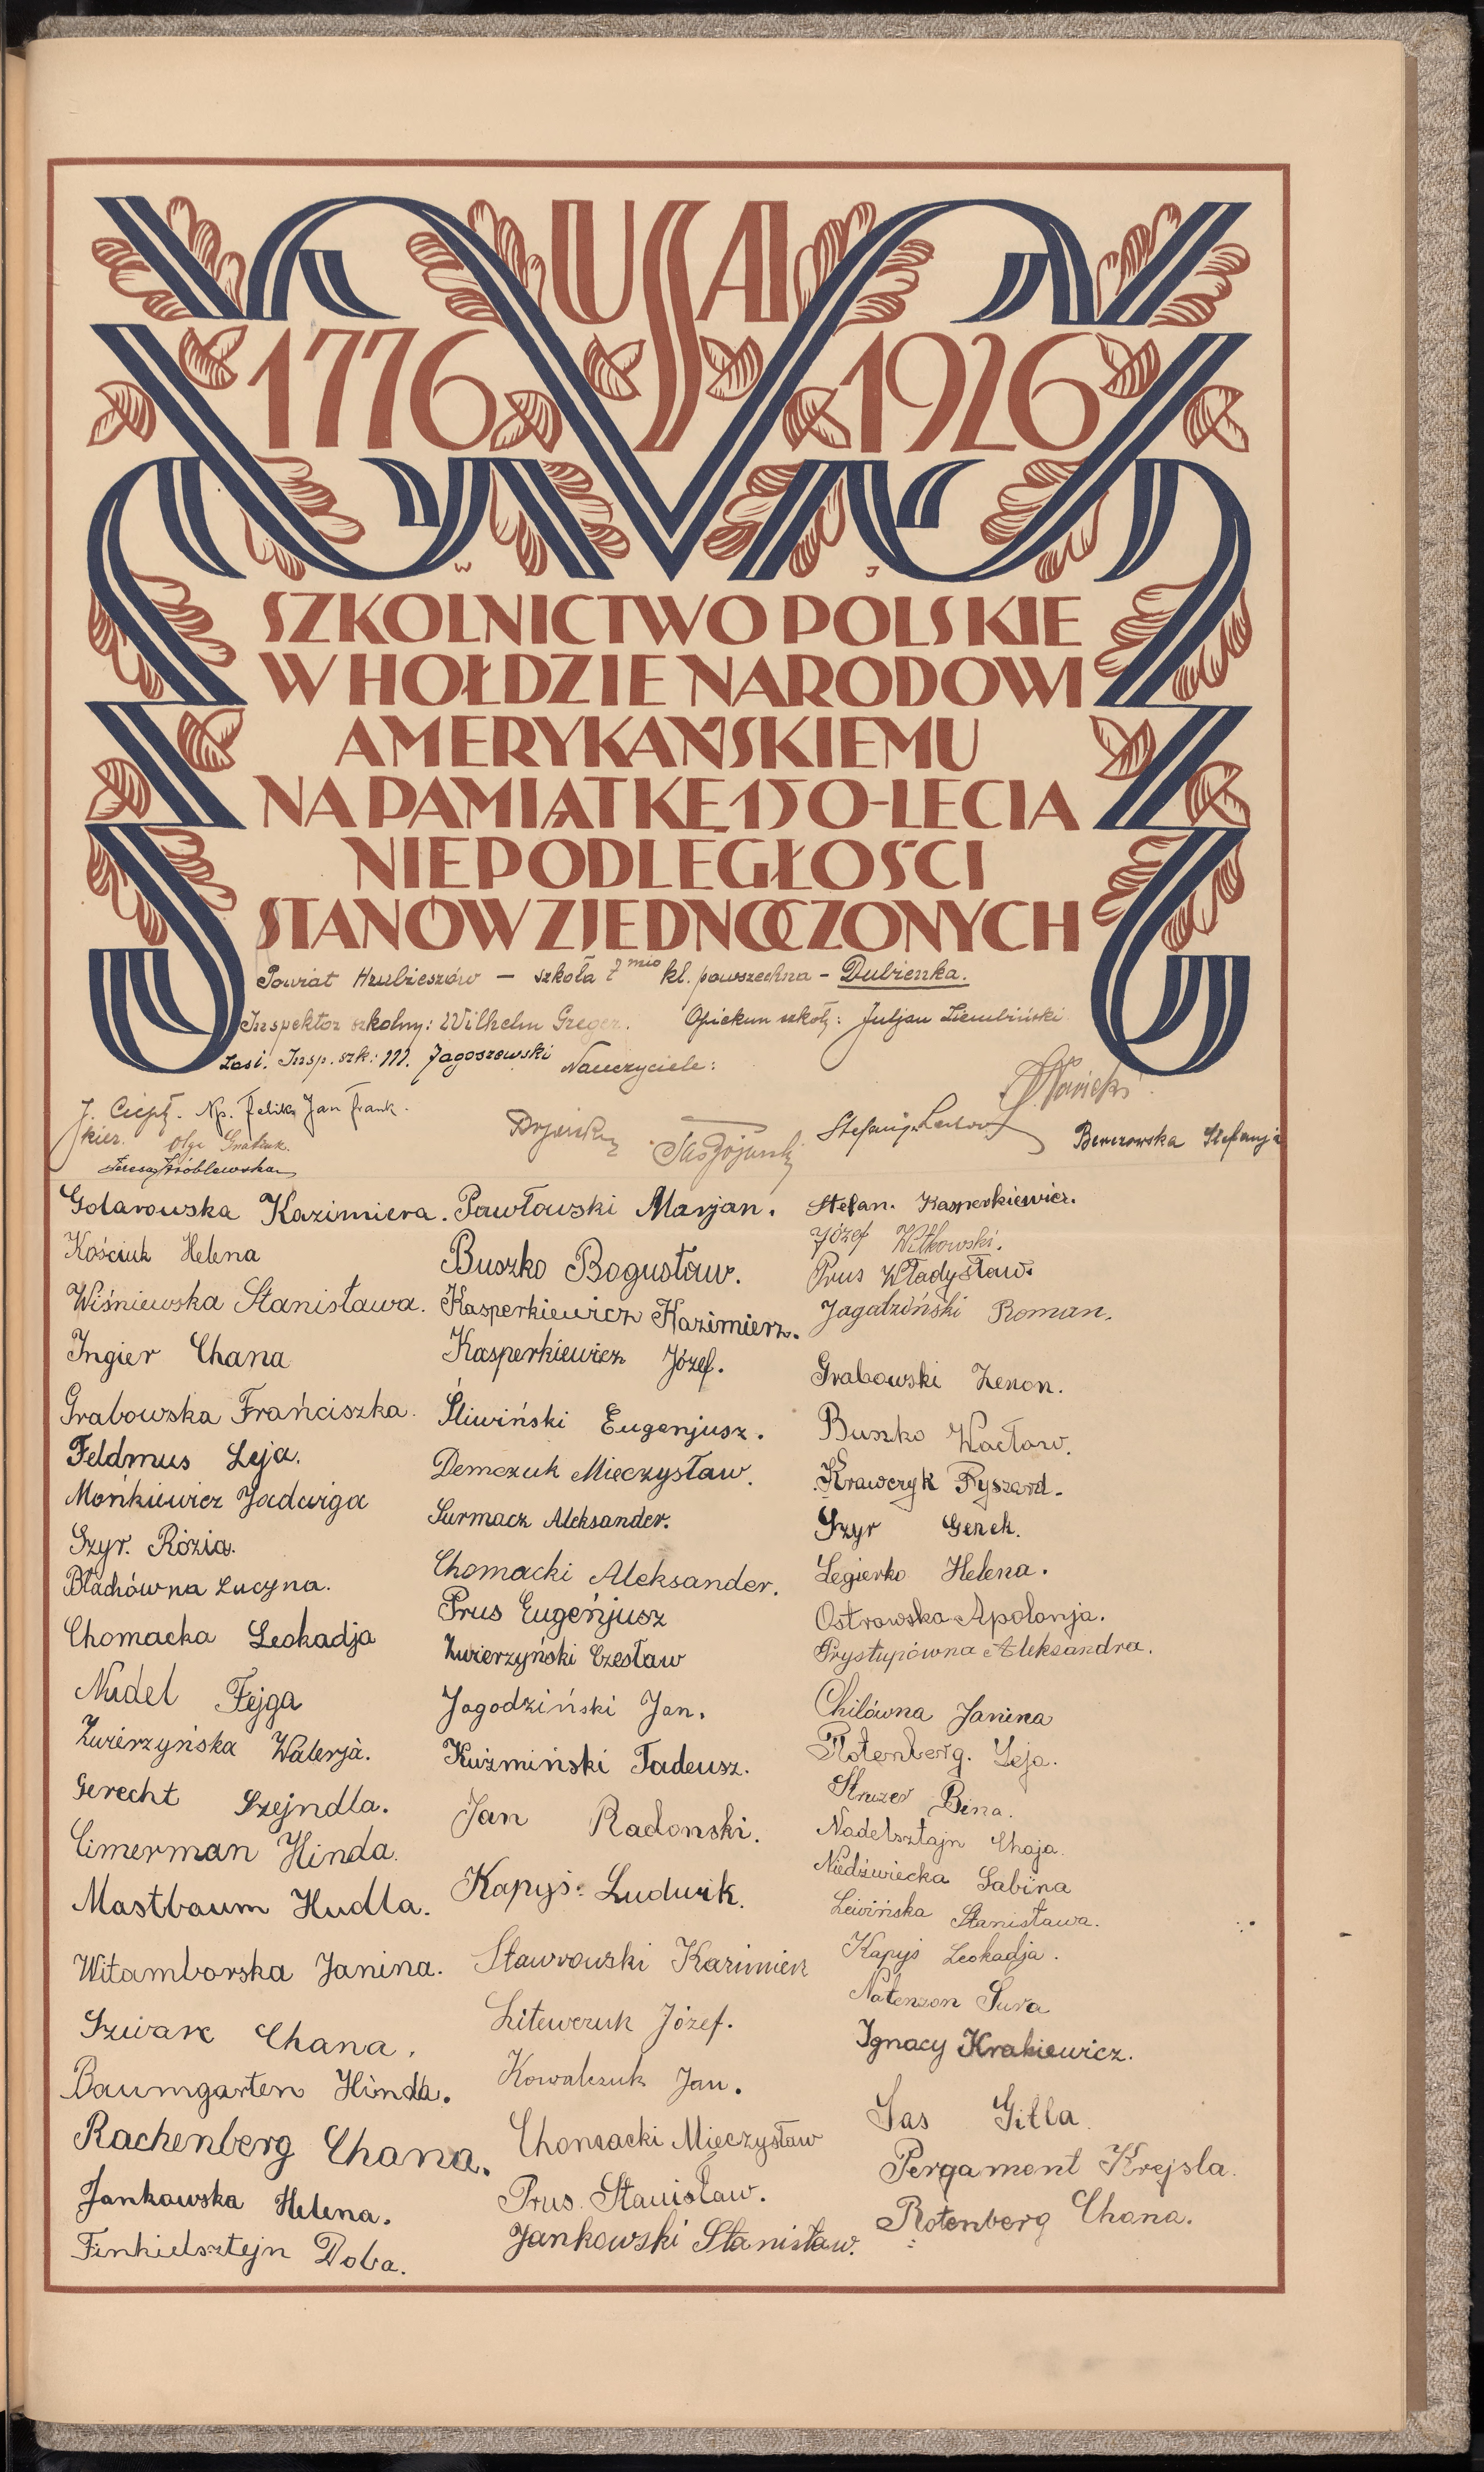 USA
1776 1926
W J
SZKOLNICTWO POLSKIE
W HOŁDZIE NARODOWI
AMERYKAŃSKIEMU
NA PAMIĄTKĘ 150-LECIA
NIEPODLEGŁOŚCI
STANÓW ZJEDNOCZONYCH
Powiat Hrubieszów — szkoła 7mio kl. powszechna – Dubienka.
Inspektor szkolny: Wilhelm Greger. Opiekun szkoły: Juljan Ziembiński
Zast. Insp. szk: M. Jagoszewski Nauczyciele:
Stefanja Berezowska Stefanja
Teresa Wróblewska
Golarowska Kazimiera.
Kościuk Helena
Wiśniewska Stanisława.
Ingier Chana
Grabowska Frańciszka.
Feldmus Leja.
Mońkiewicz Jadwiga
Szyr. Rózia.
Blachówna Lucyna.
Chomacka Leokadja
Nudel Fejga
Zwierzyńska Walerja.
Gerecht Szejndla.
Cimerman Hinda.
Mastbaum Hudla.
Witamborska Janina.
Szwarc Chana.
Baumgarten Hinda.
Rachenberg Chana.
Jankowska Helena.
Finkielsztejn Doba.
Pawłowski Marjan.
Buszko Bogusław.
Kasperkiewicz Kazimierz.
Kasperkiewicz Józef.
Śliwiński Eugenjusz.
Demczuk Mieczysław.
Surmacz Aleksander.
Chomacki Aleksander.
Prus Eugeńjusz
Zwierzyński Czesław
Jagodziński Jan.
Kuźmiński Tadeusz.
Jan Radomski.
Kapyś. Ludwik.
Stawrowski Kazimierz
Litewczuk Józef.
Kowalczuk Jan.
Chomacki Mieczysław
Prus. Stanisław.
Jankowski Stanisław.
Stefan. Kasperkiewicz.
Józef Witkowski.
Prus Władysław.
Jagodziński Roman.
Grabowski Zenon.
Buszko Wacław.
Krawczyk Ryszard.
Szyr Gerek.
Legierko Helena.
Ostrowska Apolonja.
Prystupówna Aleksandra.
Chilówna Janina
Rotenberg. Leja.
Struzer Bina.
Nadelsztajn Chaja.
Niedźwiecka Sabina
Lewińska Stanisława.
Kapyś Leokadja.
Natenzon Sura
Ignacy Krakiewicz.
Sas Gitla.
Pergament Krejsla.
Rotenberg Chana.